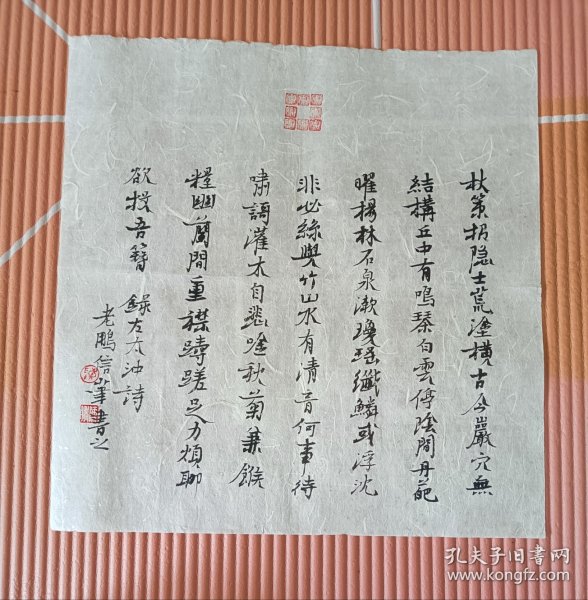 杖策招隐士荒塗橫古今巖穴無
結構丘中有鳴琴白雲停陰岡丹葩
曜楊林石泉漱瓊瑶纖鱗或浮沈
非必絲與竹山水有清音何事待
嘯謌灌木自悲唫秋菊兼餱
糧幽蘭間重襟躊躇足力煩聊
欲投吾簪
錄左太沖詩
老鵬信筆書之
孔夫子旧书网
www.kongfz.com